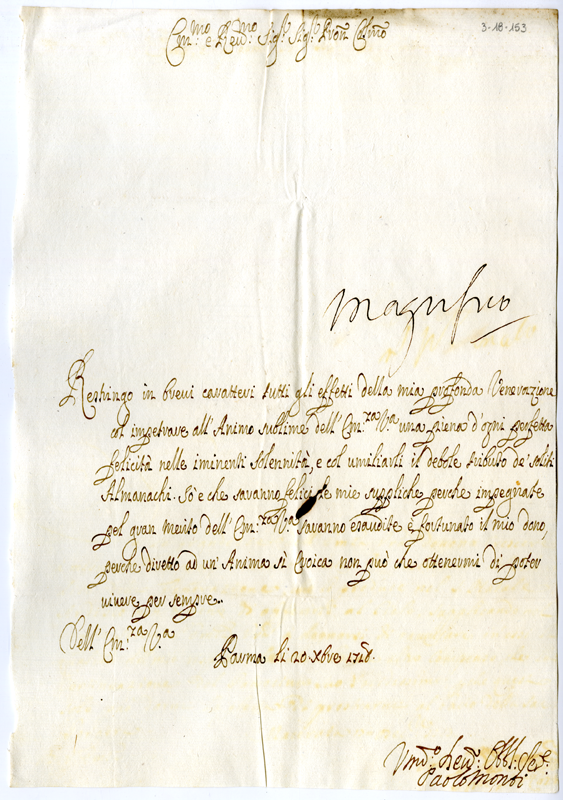 3-18-153
Em:mo e Rev:mo Sig:r Sig:r Pron Colmo
Magnifico
Restringo in brevi caratteri tutti gli effetti della mia profonda Venerazione
col impetrare all'Animo sublime dell'Em:za V:a una piena d'ogni perfetta
felicità nelle iminenti solennità, e col umiliarli il debole tributo de' soliti
Almanachi. Sò e che saranno felici le mie suppliche perche impegnate
pel gran merito dell'Em:za V:a saranno esaudite e fortunato il mio dono,
perche diretto ad un'Anima sì Eroica non può che ottenermi di poter
vivere per sempre..
Dell'Em:za V:a
Parma li 20 Xbre 1718.
Um:o Dev: Obbl: Se:
Paolo Monti